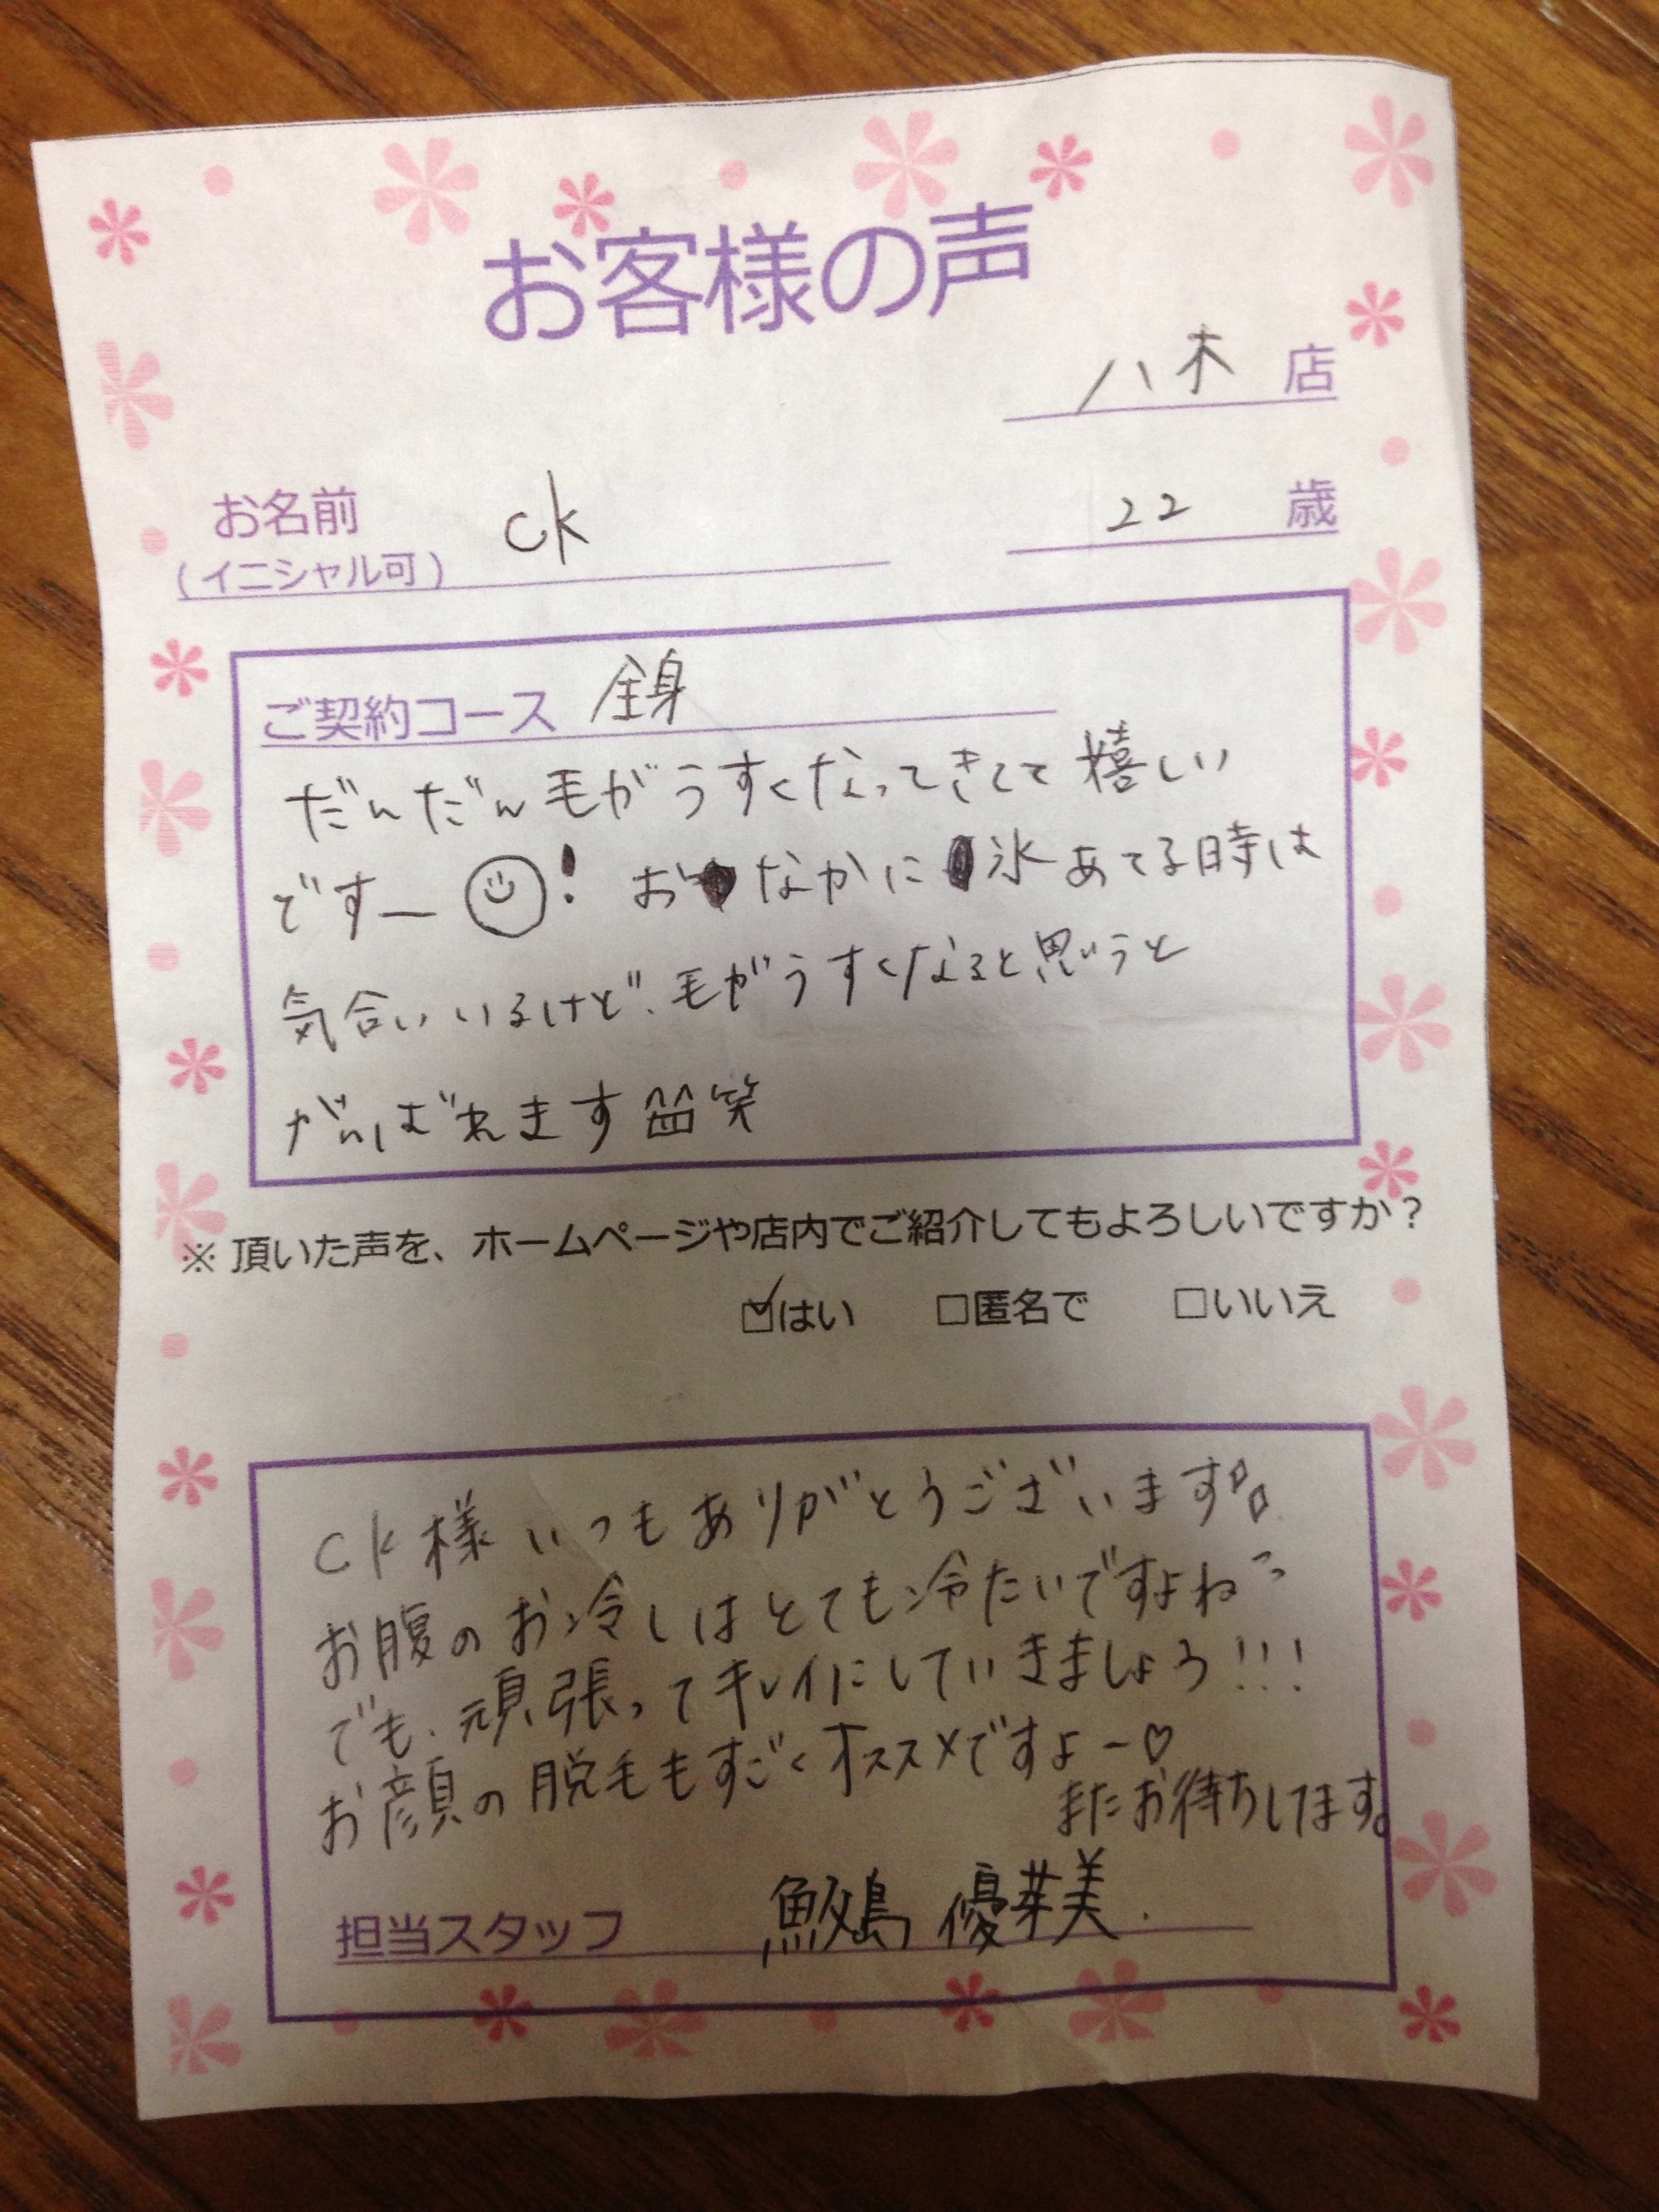 お客様の声
八木 店
お名前 CK 22 歳
(イニシャル可)
ご契約コース 全身
だんだん毛がうすくなってきてて嬉しい
ですー! おなかに氷あてる時は
気合いいるけど、毛がうすくなると思うと
がんばれます 笑
※頂いた声を、ホームページや店内でご紹介してもよろしいですか?
☑はい □匿名で □いいえ
CK様いつもありがとうございます
お腹のお冷しはとても冷たいですよねっ
でも、頑張ってキレイにしていきましょう!!!
お顔の脱毛もすごくオススメですよー♡
またお待ちしてます。
担当スタッフ 鮫島 優芽美.